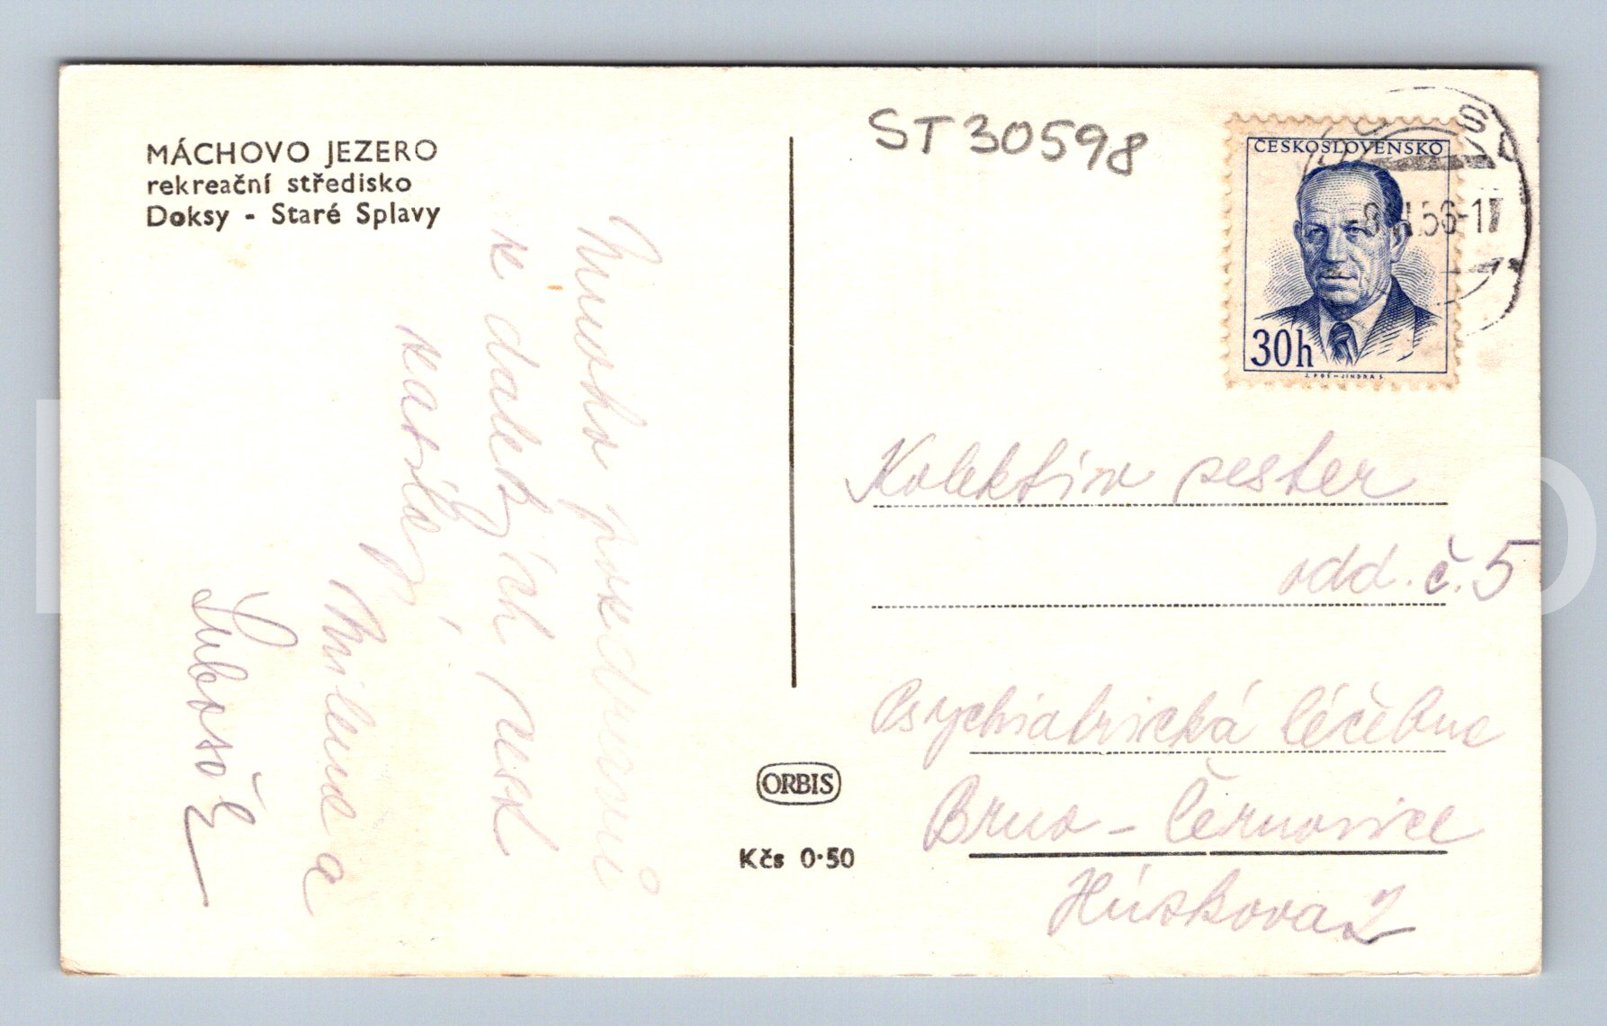 MÁCHOVO JEZERO
rekreační středisko
Doksy - Staré Splavy
Mnoho pozdravů
z dalekých cest
zasílají
Milena a
Luboš Z
ORBIS
Kčs 0·50
ST30598
ČESKOSLOVENSKO
30h
56-17
Kolektiv sester
odd. č. 5
Psychiatrická léčebna
Brno - Černovice
Húskova 2